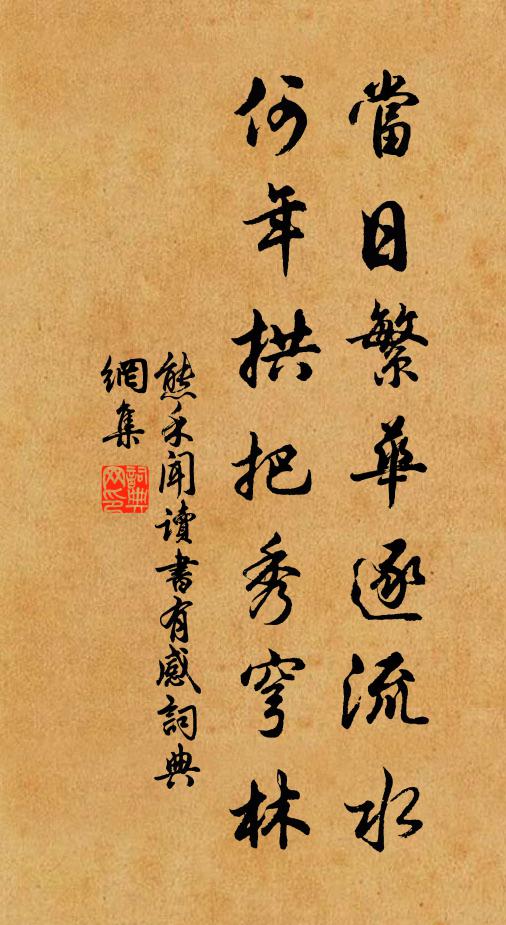 當日繁華逐流水
何年拱把秀穹林
熊禾聞讀書有感詞典
網集
詞典
网印